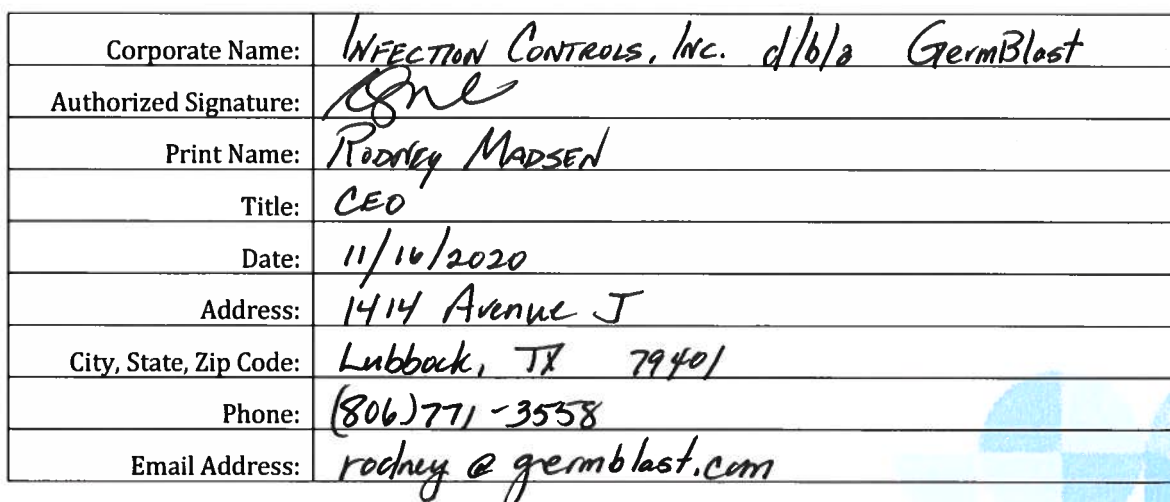 Corporate Name: INFECTION CONTROLS, INC. d/b/a GermBlast
Authorized Signature:
Print Name: RODNEY MADSEN
Title: CEO
Date: 11/16/2020
Address: 1414 Avenue J
City, State, Zip Code: Lubbock, TX 79401
Phone: (806)771-3558
Email Address: rodney@germblast.com